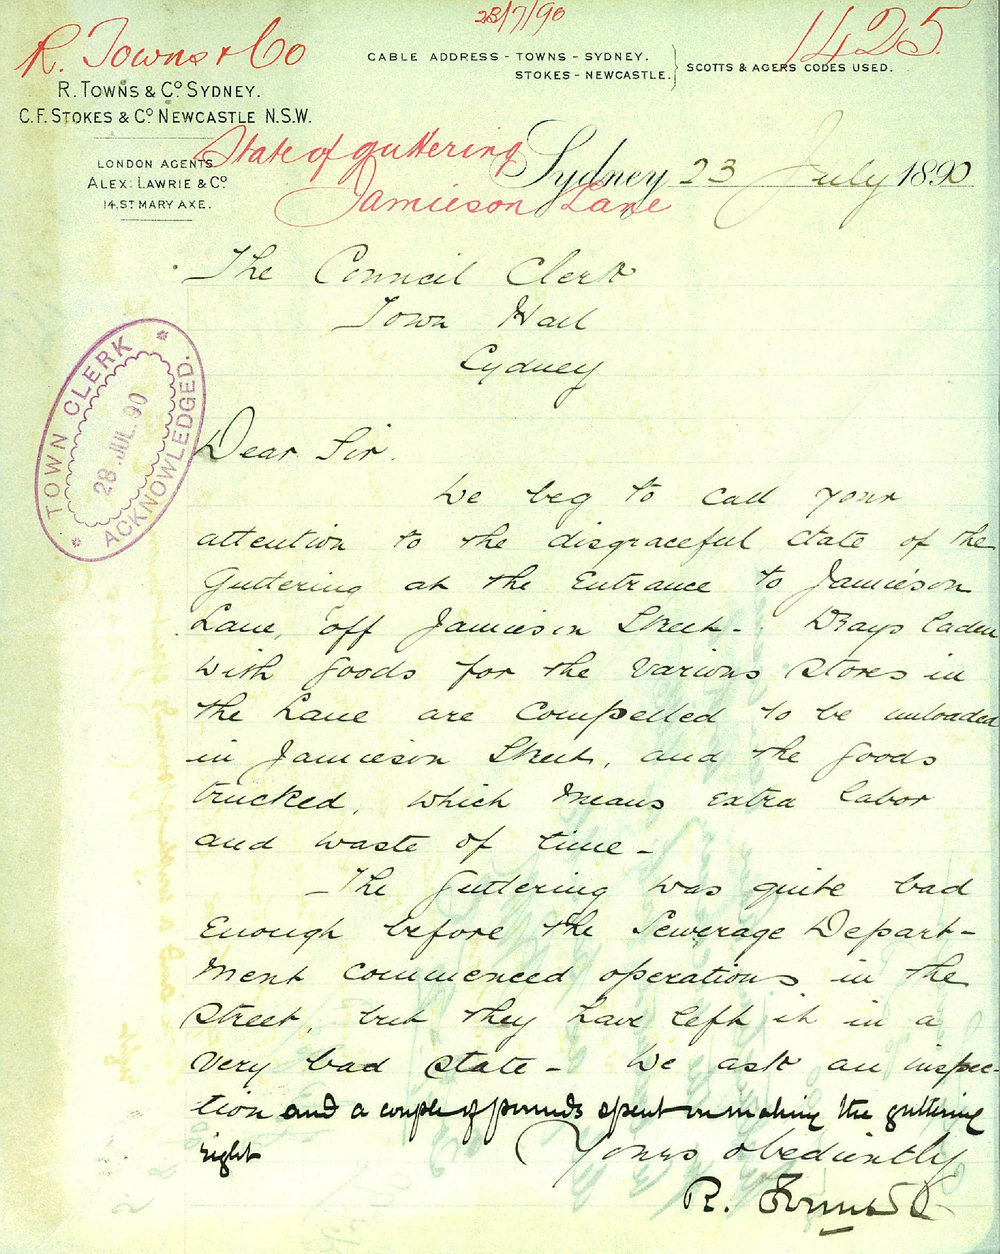 23/7/90
R. Towns & Co
1425.
CABLE ADDRESS - TOWNS - SYDNEY.
STOKES - NEWCASTLE.
SCOTTS & AGERS CODES USED.
R. TOWNS & Co SYDNEY.
C.F. STOKES & Co NEWCASTLE N.S.W.
LONDON AGENTS
ALEX: LAWRIE & Co
14, ST MARY AXE.
State of guttering
Jamieson Lane
Sydney 23 July 1890
The Council Clerk
Town Hall
Sydney
TOWN CLERK
28 JUL. 90
ACKNOWLEDGED.
Dear Sir.
We beg to call your
attention to the disgraceful state of the
Guttering at the Entrance to Jamieson
Lane, off Jamieson Street - Drays laden
with goods for the various stores in
the Lane are compelled to be unloaded
in Jamieson Street, and the goods
trucked, which means extra labor
and waste of time -
The guttering was quite bad
enough before the Sewerage Depart-
ment commenced operations in the
Street, but they have left it in a
very bad state - We ask an inspec-
tion and a couple of pounds spent on making the guttering
right
Yours obediently
R. Towns & Co